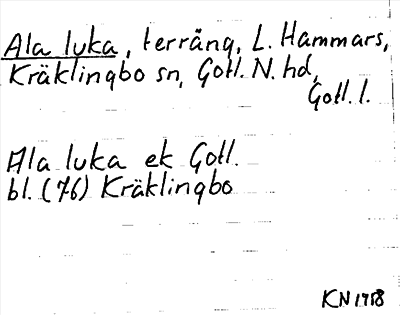 Ala luka, terräng, L. Hammars,
Kräklingbo sn, Gotl. N. hd,
Gotl. l.
Ala luka ek Gotl.
bl. (76) Kräklingbo
KN 1978